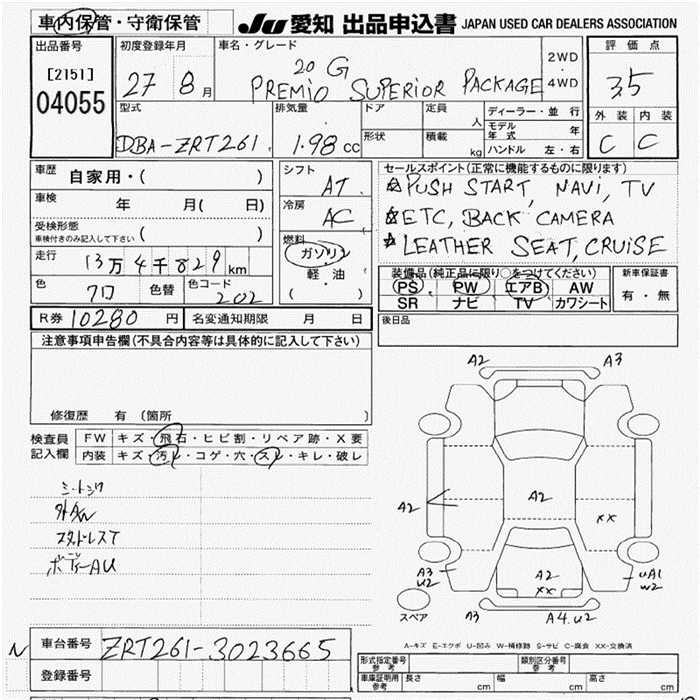 車内保管・守衛保管
JU 愛知 出品申込書 JAPAN USED CAR DEALERS ASSOCIATION
出品番号 初度登録年月 車名・グレード 評価点
[2151]
04055
27 8月
20 G
PREMIO SUPERIOR PACKAGE
2WD
・
4WD
3.5
型式 排気量 ドア 定員 人 ディーラー・並行 外装 内装
モデル年式 年
DBA-ZRT261 1.98cc 形状 積載 kg ハンドル 左・右 C C
車歴 自家用・( )
シフト AT
セールスポイント(正常に機能するものに限ります)
☆PUSH START, NAVI, TV
☆ETC, BACK CAMERA
☆LEATHER SEAT, CRUISE
車検 年 月( 日)
冷房 AC
受検形態
車検付きのみ記入して下さい ( )
燃料 ガソリン
軽・油
( )
走行 13万4千829km
色 色替 色コード 202
装備品(純正品に限り○をつけてください) 新車保証書
PS PW エアB AW 有・無
SR ナビ TV カワシート
R券 10280円 名変通知期限 月 日
後日品
注意事項申告欄(不具合内容等は具体的に記入して下さい)
修復歴 有(箇所 )
検査員記入欄
FW キズ・飛石・ヒビ割・リペア跡・X要
内装 キズ・汚レ・コゲ・穴・スレ・キレ・破レ
外AW
スタッドレスT
ボディーAU
A2 A3
A2 A2 XX
A3
U2
A2
XX
UA1
W2
スペア A3 A4.U2
A-キズ E-エクボ U-凹み W-補修跡 S-サビ C-腐食 XX-交換済
N 車台番号 ZRT261-3023665
登録番号
形式指定番号 参考 類別区分番号 参考
車庫証明用 参考 長さ cm 幅 cm 高さ cm